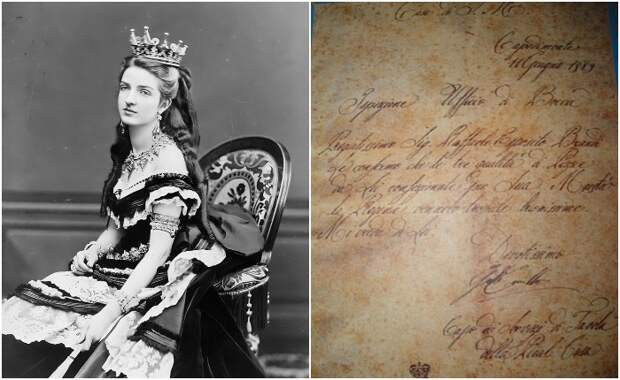 Casa di S. M.
Capodimonte
11 Giugno 1889
Ispezione Ufficio di Bocca
Pregiatissimo Sig. Raffaele Esposito Brandi
Le confermo che di tre qualità di Pizze
da Lei confezionate per Sua Maestà
la Regina vennero trovate buonissime
Mi creda di Lei
Devotissimo
Galli Camillo
Capo dei Servizi di Tavola
della Real Casa